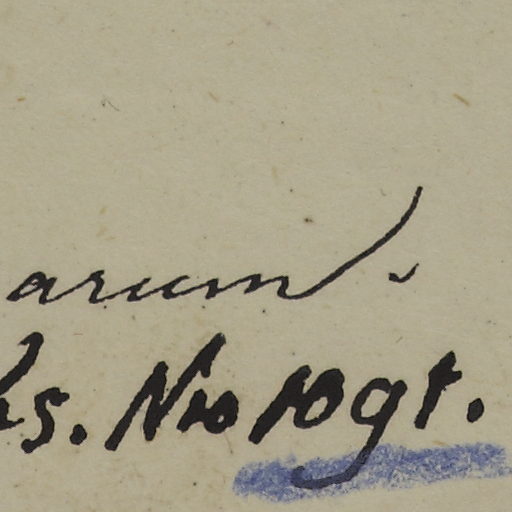 arum.
s. No 1091.